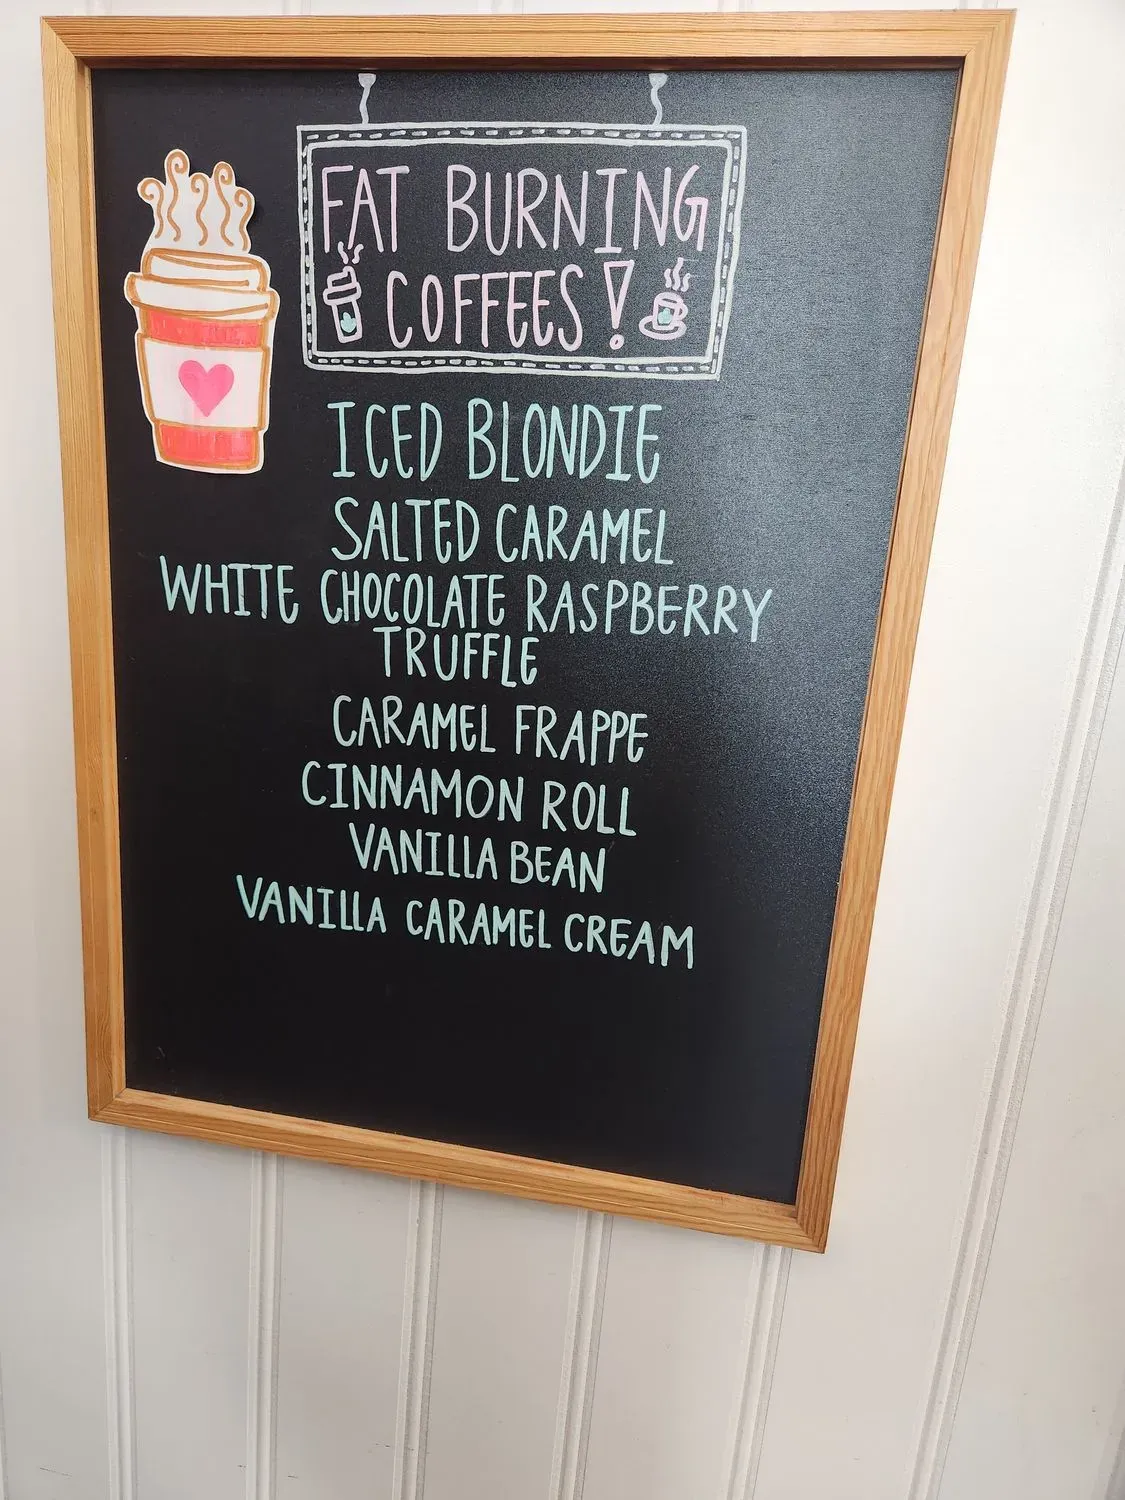 FAT BURNING
COFFEES!
ICED BLONDIE
SALTED CARAMEL
WHITE CHOCOLATE RASPBERRY
TRUFFLE
CARAMEL FRAPPE
CINNAMON ROLL
VANILLA BEAN
VANILLA CARAMEL CREAM